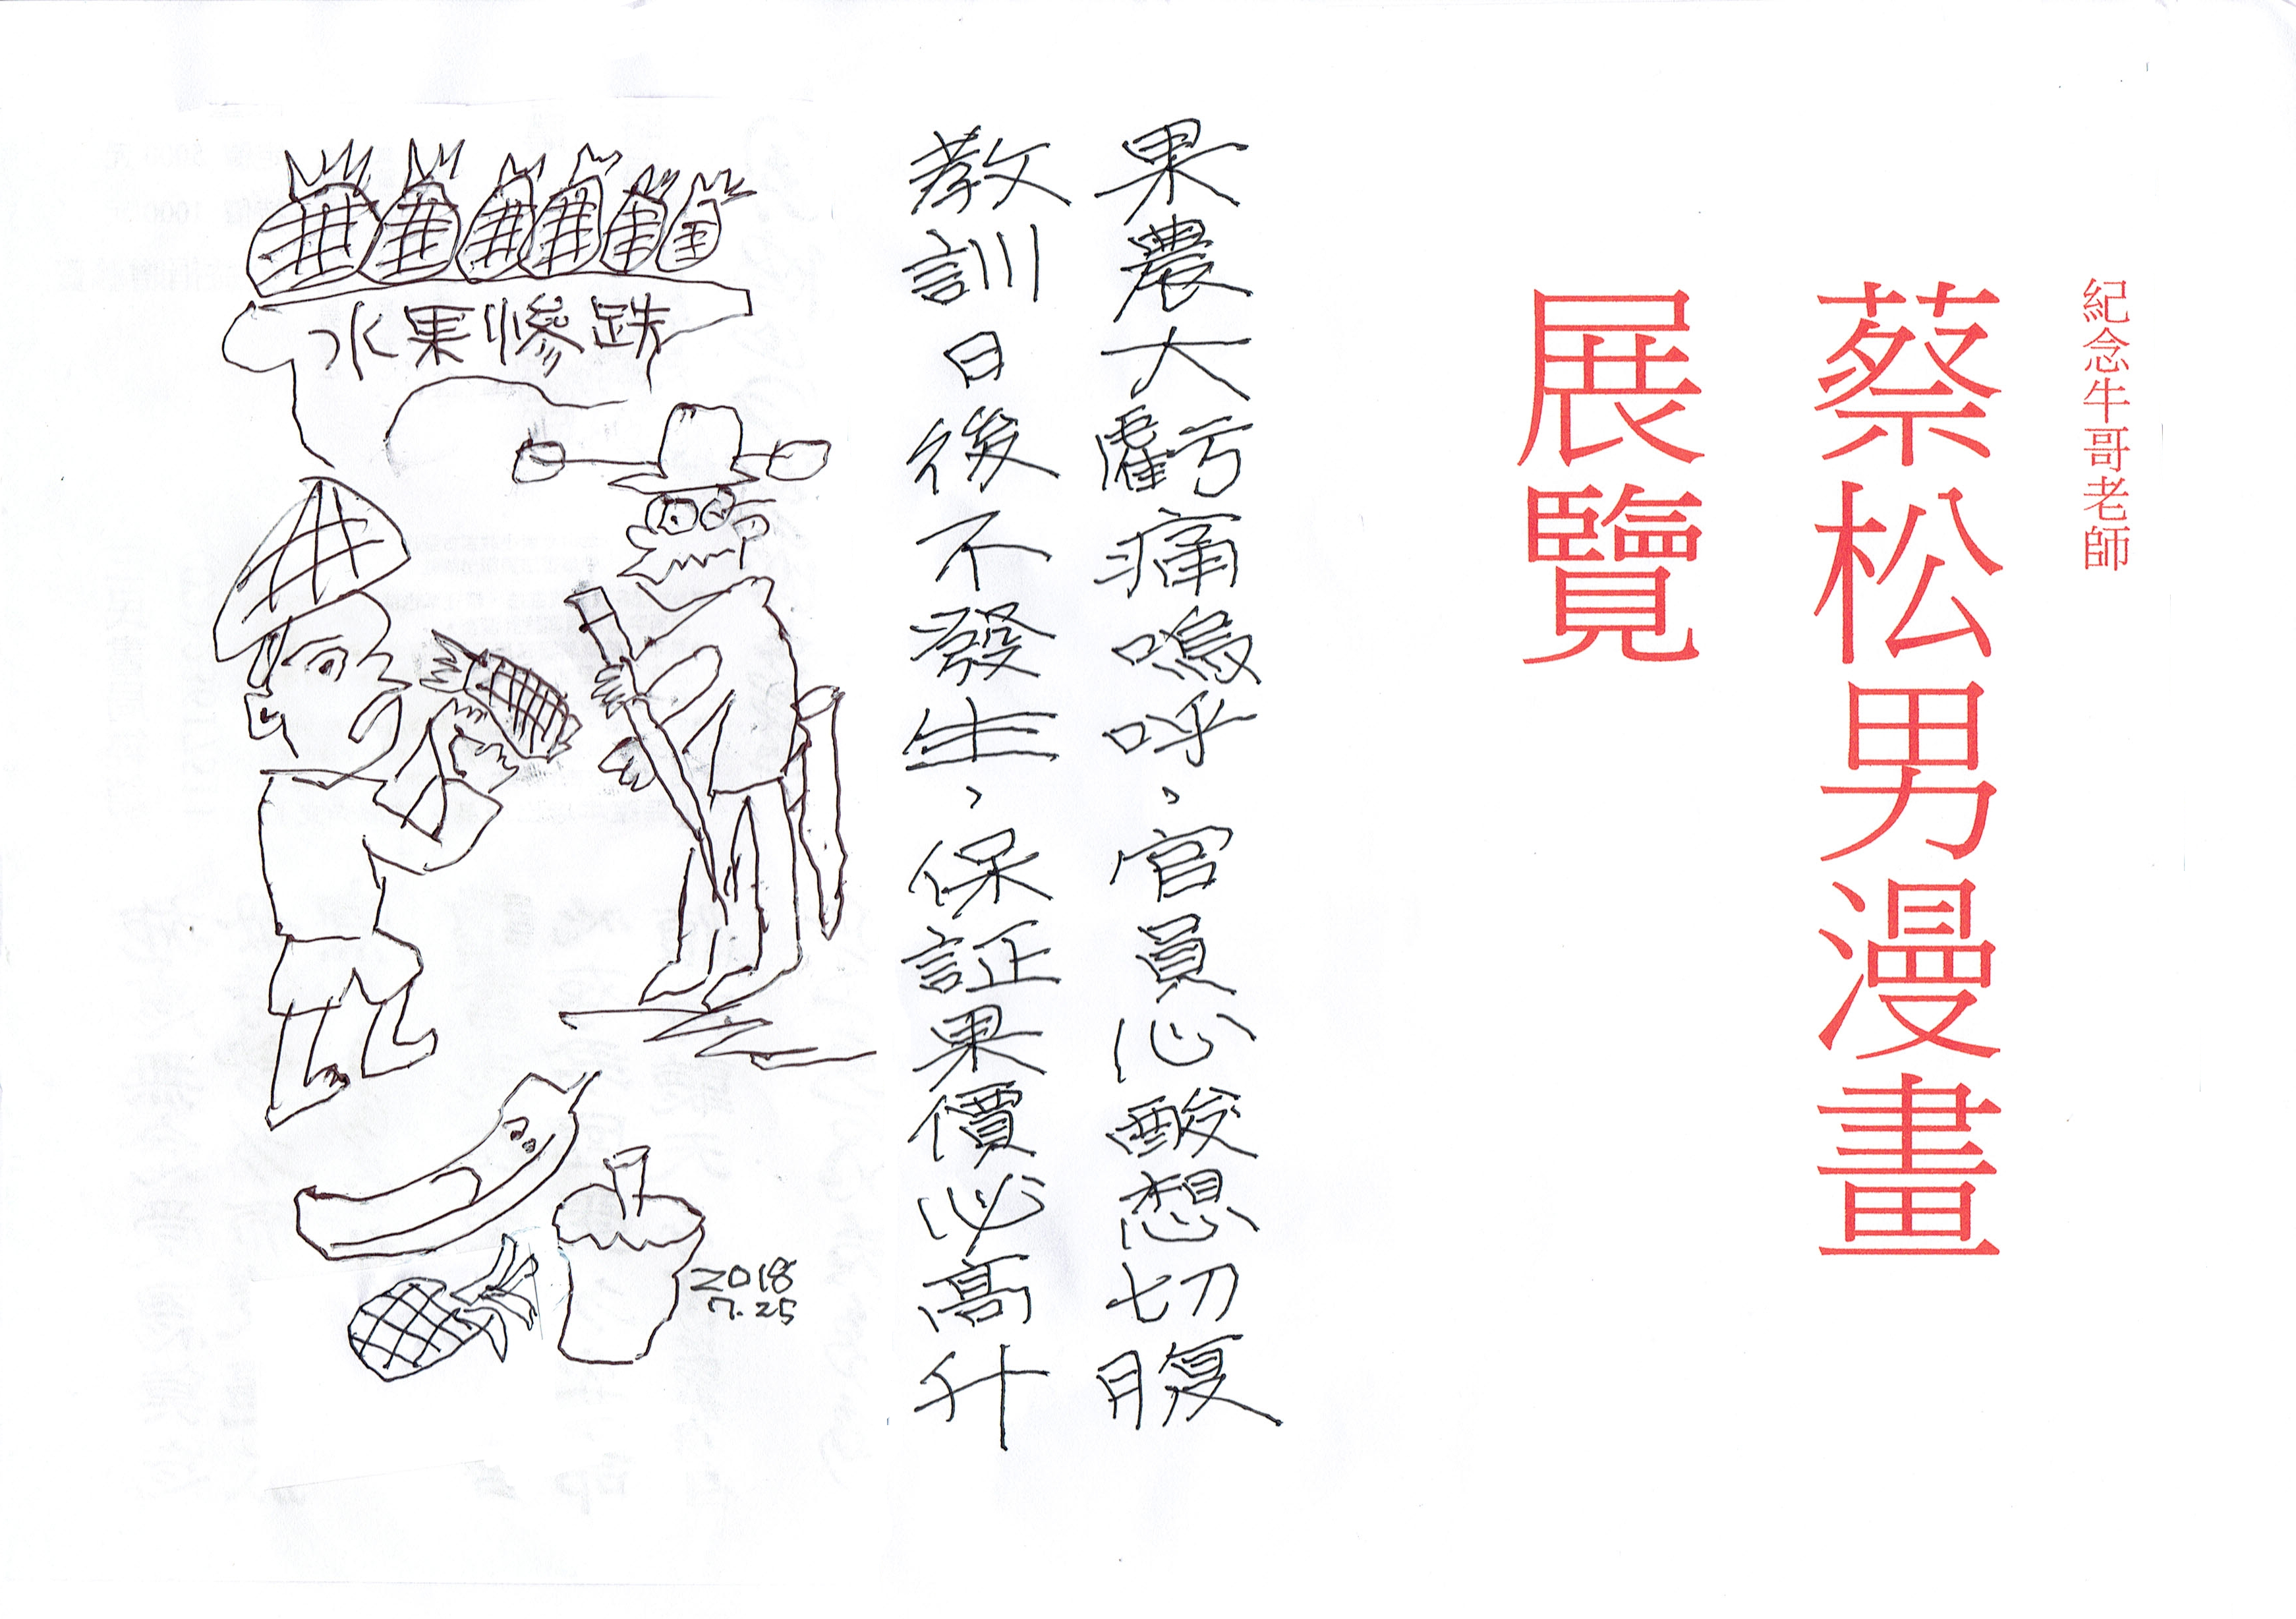 紀念牛哥老師
蔡松男漫畫
展覽
果農大虧痛嗚呼、官員心酸想切腹
教訓日後不發生、保証果價必高升
水果慘跌
2018
7.25